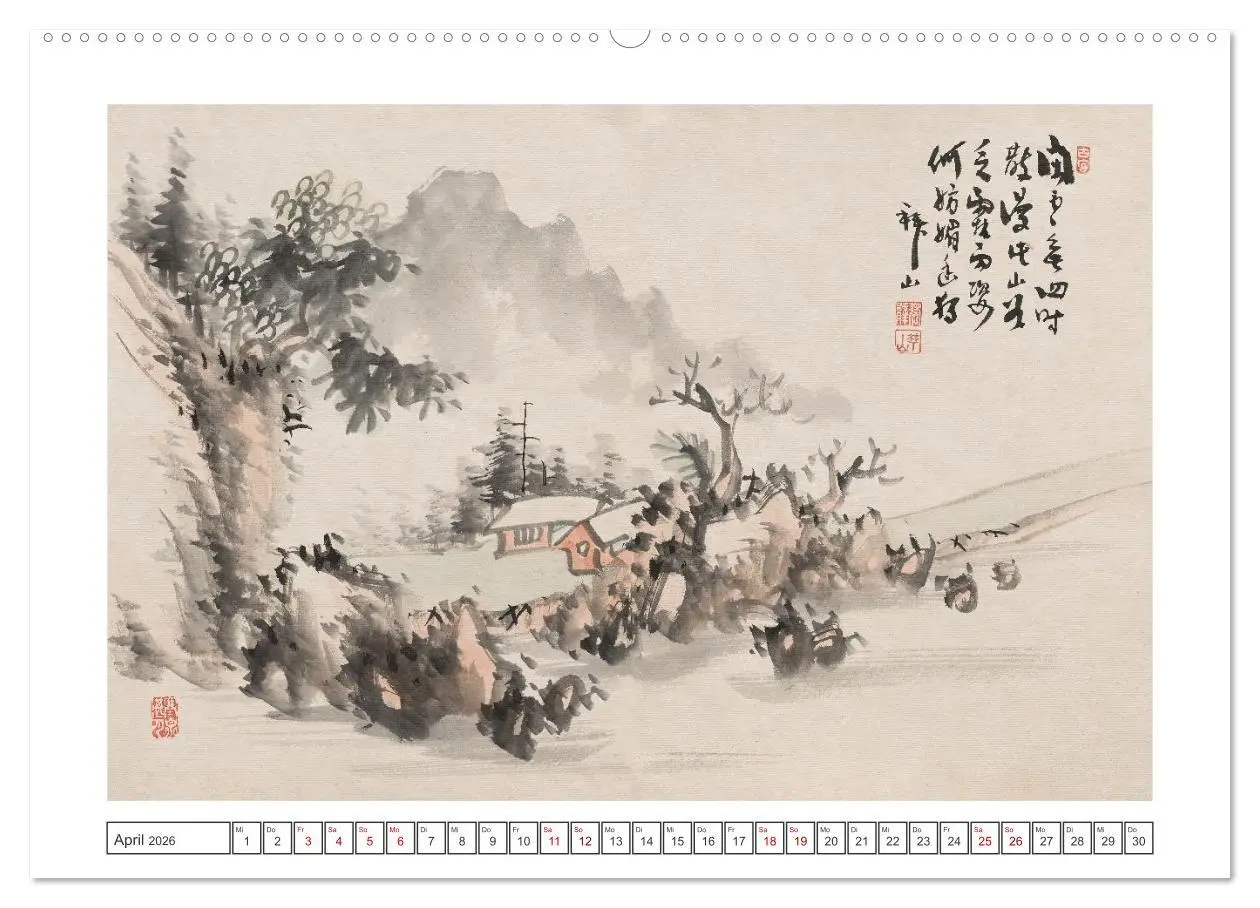 閒雲無四時
散漫此山谷
乏霖雨姿
何妨媚幽獨
山
April 2026
Mi Do Fr Sa So Mo Di Mi Do Fr Sa So Mo Di Mi Do Fr Sa So Mo Di Mi Do Fr Sa So Mo Di Mi Do
1 2 3 4 5 6 7 8 9 10 11 12 13 14 15 16 17 18 19 20 21 22 23 24 25 26 27 28 29 30